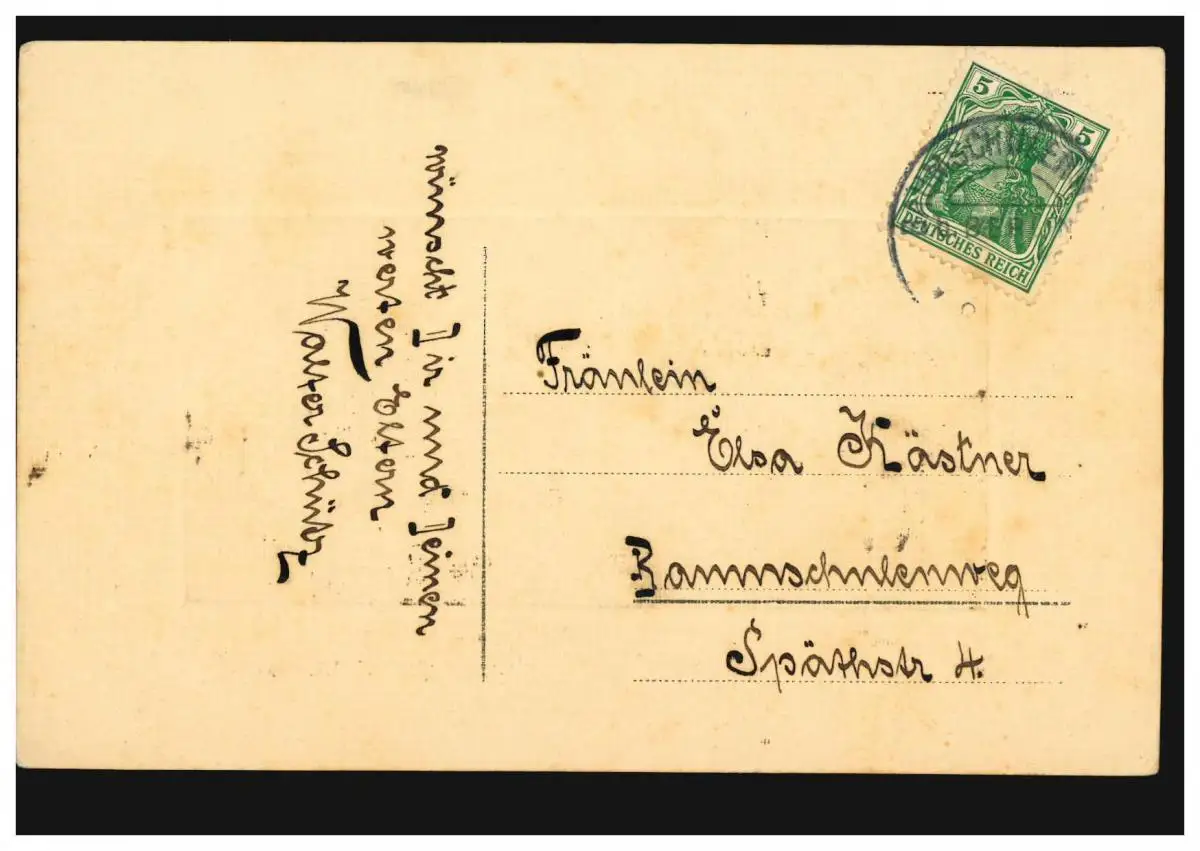 wünscht Dir und Deinen
werten Eltern
Walter Schulz
5 5
DEUTSCHES REICH
Fräulein
Elsa Kästner
Baumschulenweg
Späthstr 4.